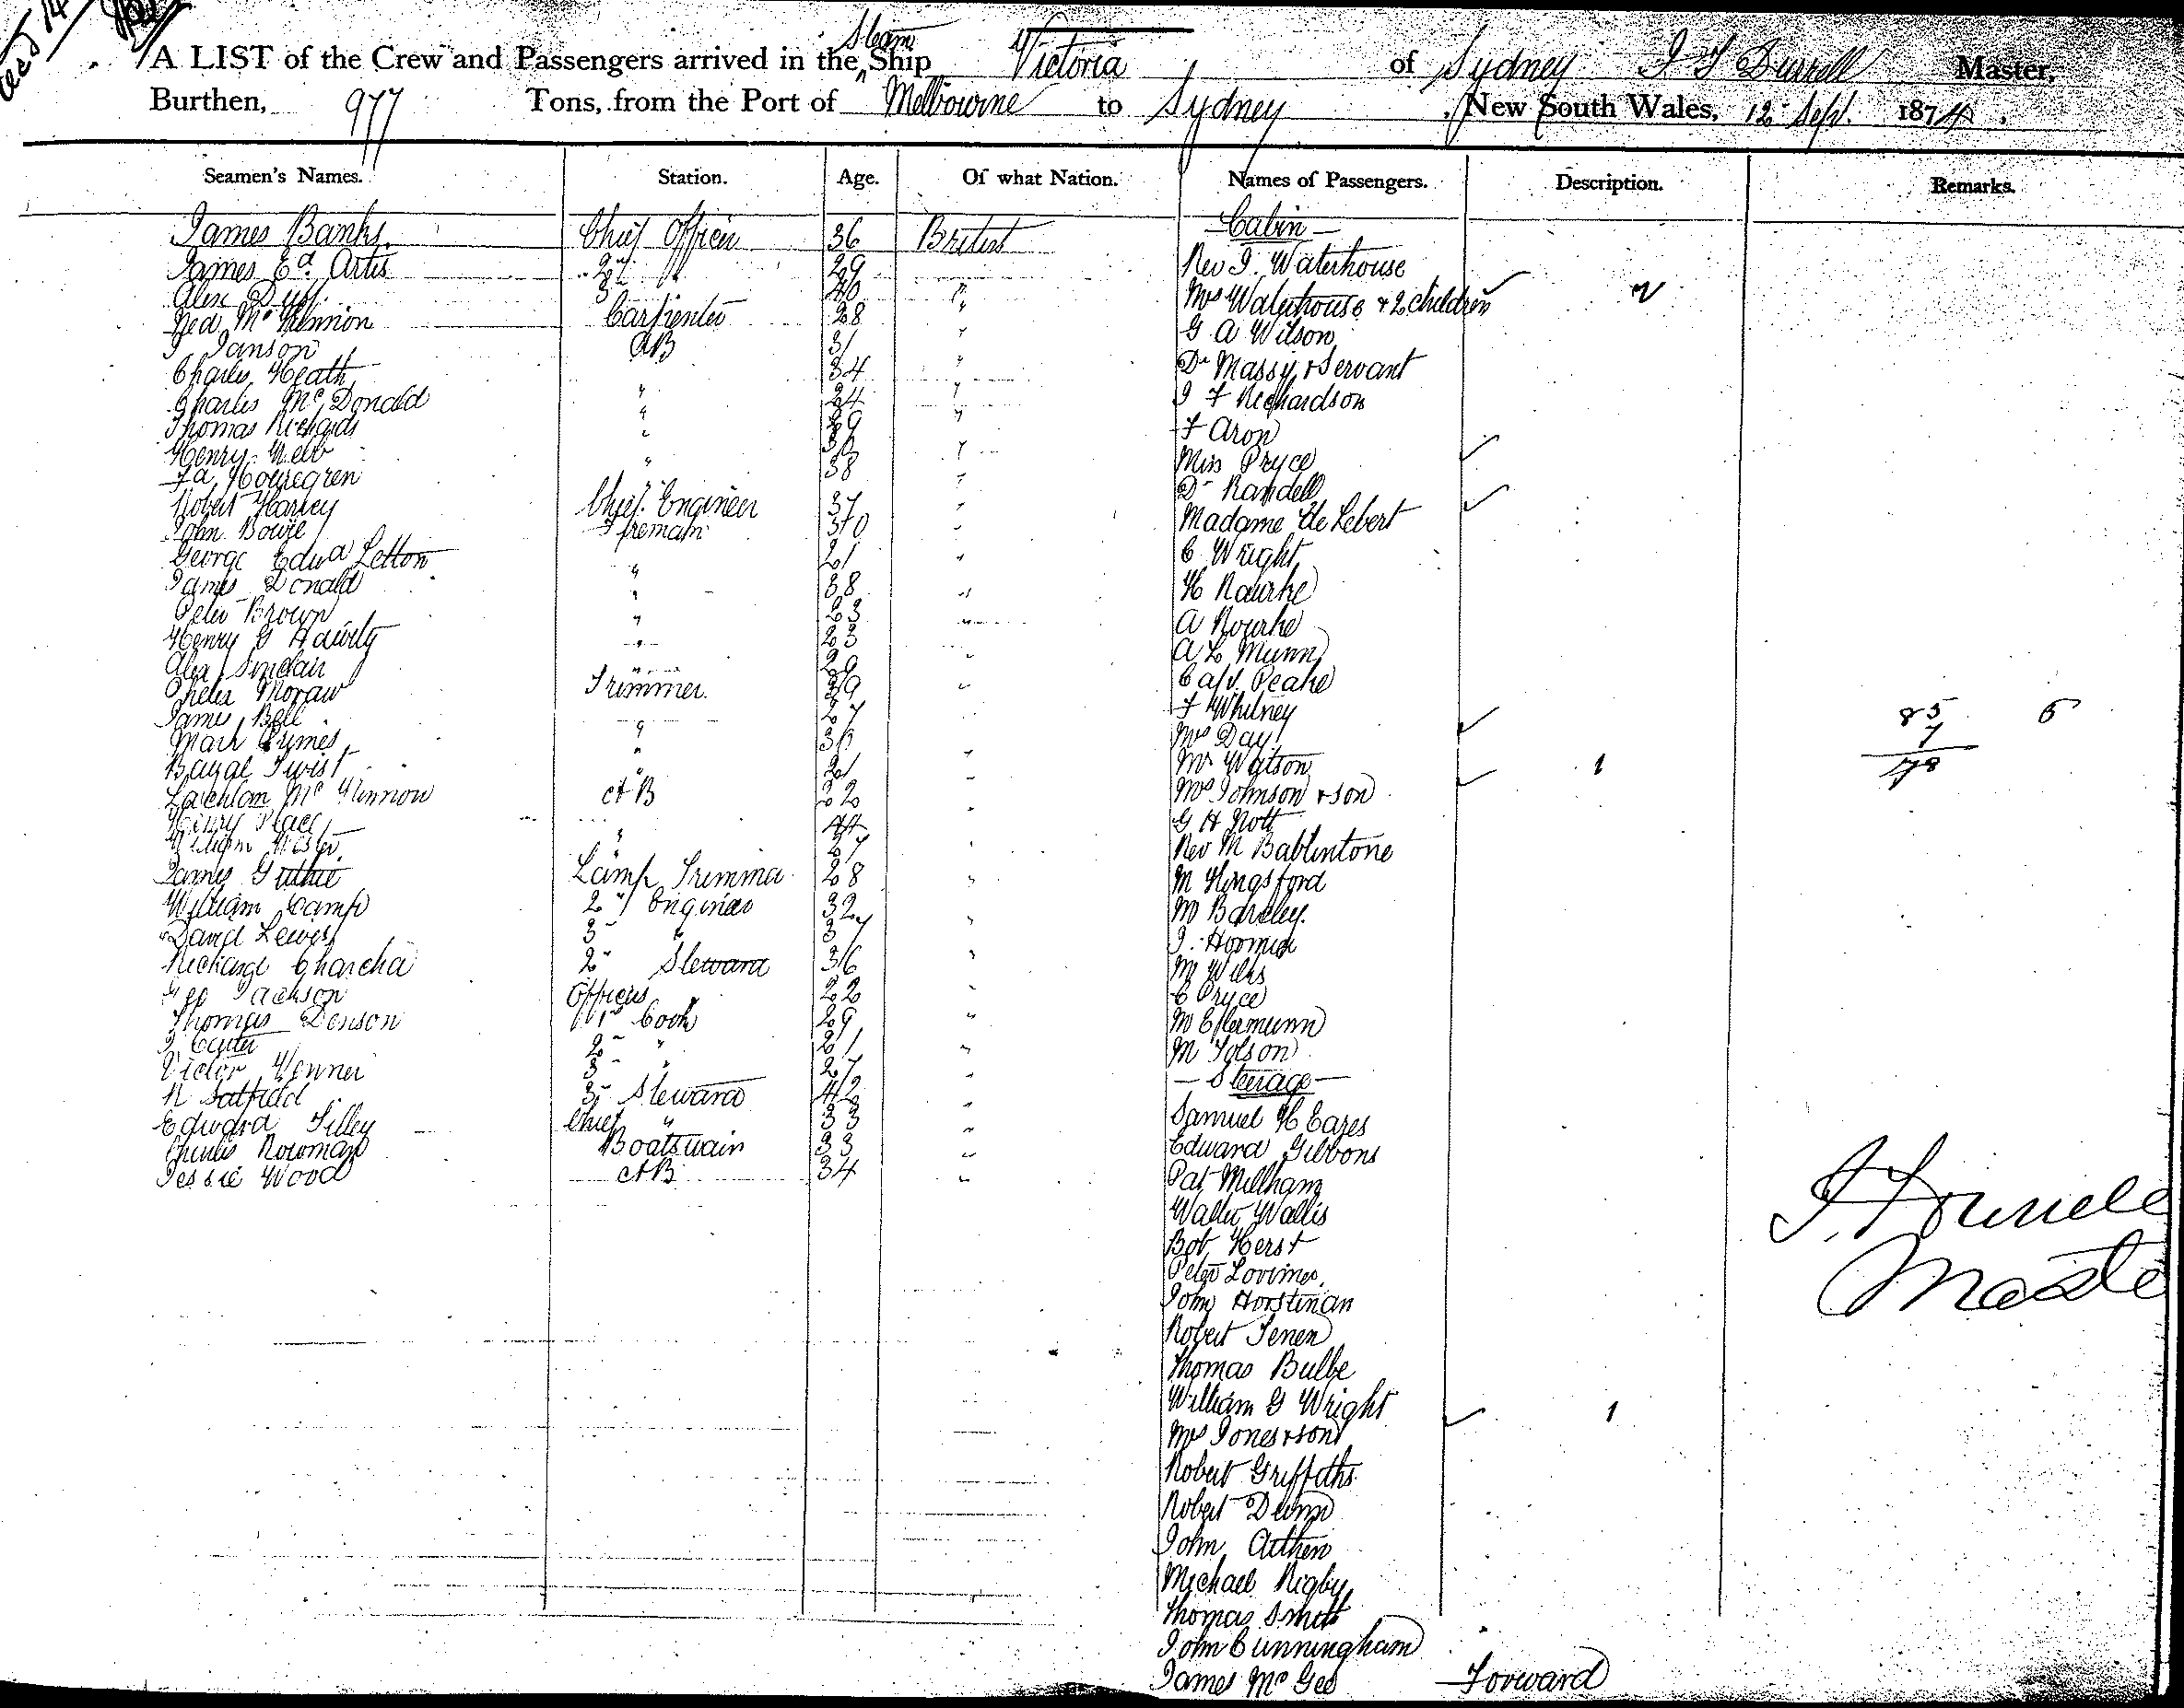 A LIST of the Crew and Passengers arrived in the Steam Ship Victoria of Sydney Master,
Burthen, 977 Tons, from the Port of Melbourne to Sydney, New South Wales, 12 Sept. 1874.
Seamen's Names. Station. Age. Of what Nation. Names of Passengers. Description. Remarks.
James Banks. Chief Officer 36 British
James Ed. Artis 2nd " 29 "
Alex Duff. 3 " 40 "
Carpenter 28 "
Janson AB 31 "
Charles Heath 34 "
Charles McDonald " 24 "
Thomas Richards " 29 "
Henry Webb " "
" 38 "
Robert Harvey Chief Engineer 37 "
John Bowie Fireman "
George Edwd Letton 21 "
James Donald " 38 "
Peter Brown " 23 "
Henry G " 23 "
Alex Sinclair " 29 "
Trimmer. 39 "
James Bell 27
Mark "
Twist " 21 "
Lachlan Mc AB 22 "
Henry Place 44 "
William " 27 "
James Guthrie Lamp Trimmer 28 "
William Camp 2nd Engineer 32 "
David Lewis 3 " 37 "
Richard 2nd Steward 36 "
Geo Jackson Officers " 22 "
Thomas Denson 1st Cook 29 "
2nd " 21 "
Victor Wenner 3 " 27 "
3rd Steward 42 "
Edward Tilley Chief " 33 "
Charles Bowman Boatswain 33 "
Jessie Wood AB 34 "
Cabin
Rev J. Waterhouse
Mrs Waterhouse + 2 children 2
G A Wilson
Dr Massy + Servant
J F Richardson
F Aron
Miss Pryce
Dr Randell
Madame de Lebert
C Wright
H Rourke
A Rourke
A L Munn
Capt. Peake
F Whitney
Mrs Day
Mr Watson
Mrs Johnson + son 1
G H Nott
Rev M Bablintone
M Kingsford
M Barcley.
J.
M Wilks
C Pryce
M Ellermunn
M Tolson
Steerage
Samuel H Eares
Edward Gibbons
Pat Millham
Walter Wallis
Bob Herst
Peter Lorimer
John Horstman
Robert
Thomas Bulbe
William G Wright
Mrs Jones + son 1
Robert Griffiths
Robert Dunn
John Aitken
Michael Rigby
Thomas Smith
John Cunningham
James McGee Forward
85 5
7
78
Master